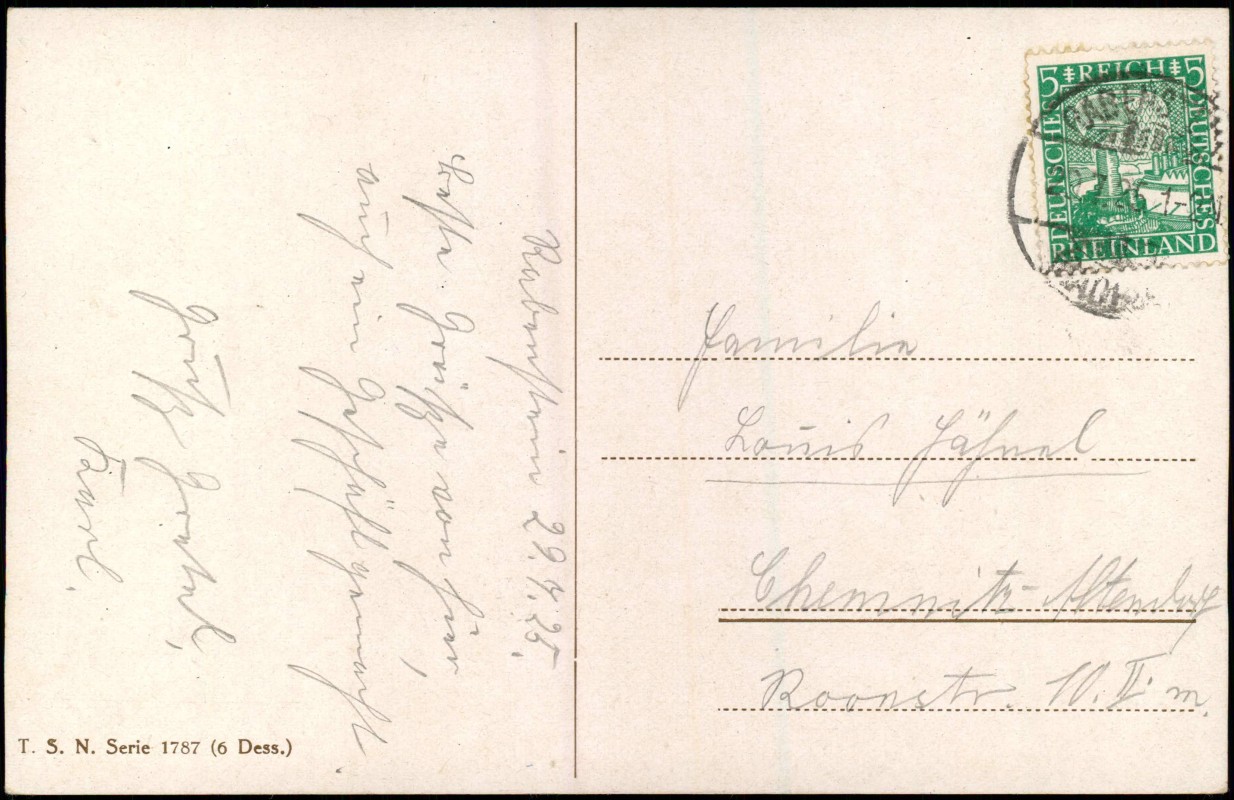 Rabenstein 29.7.25.
Beste Grüße von hier,
auch ein Geschäft gemacht.
Gruß Gretel,
Karl.
T. S. N. Serie 1787 (6 Dess.)
5 REICH 5
DEUTSCHES
DEUTSCHES
RHEINLAND
Familie
Louis Jähnel
Chemnitz-Altendorf
Roonstr. 10. II. m.